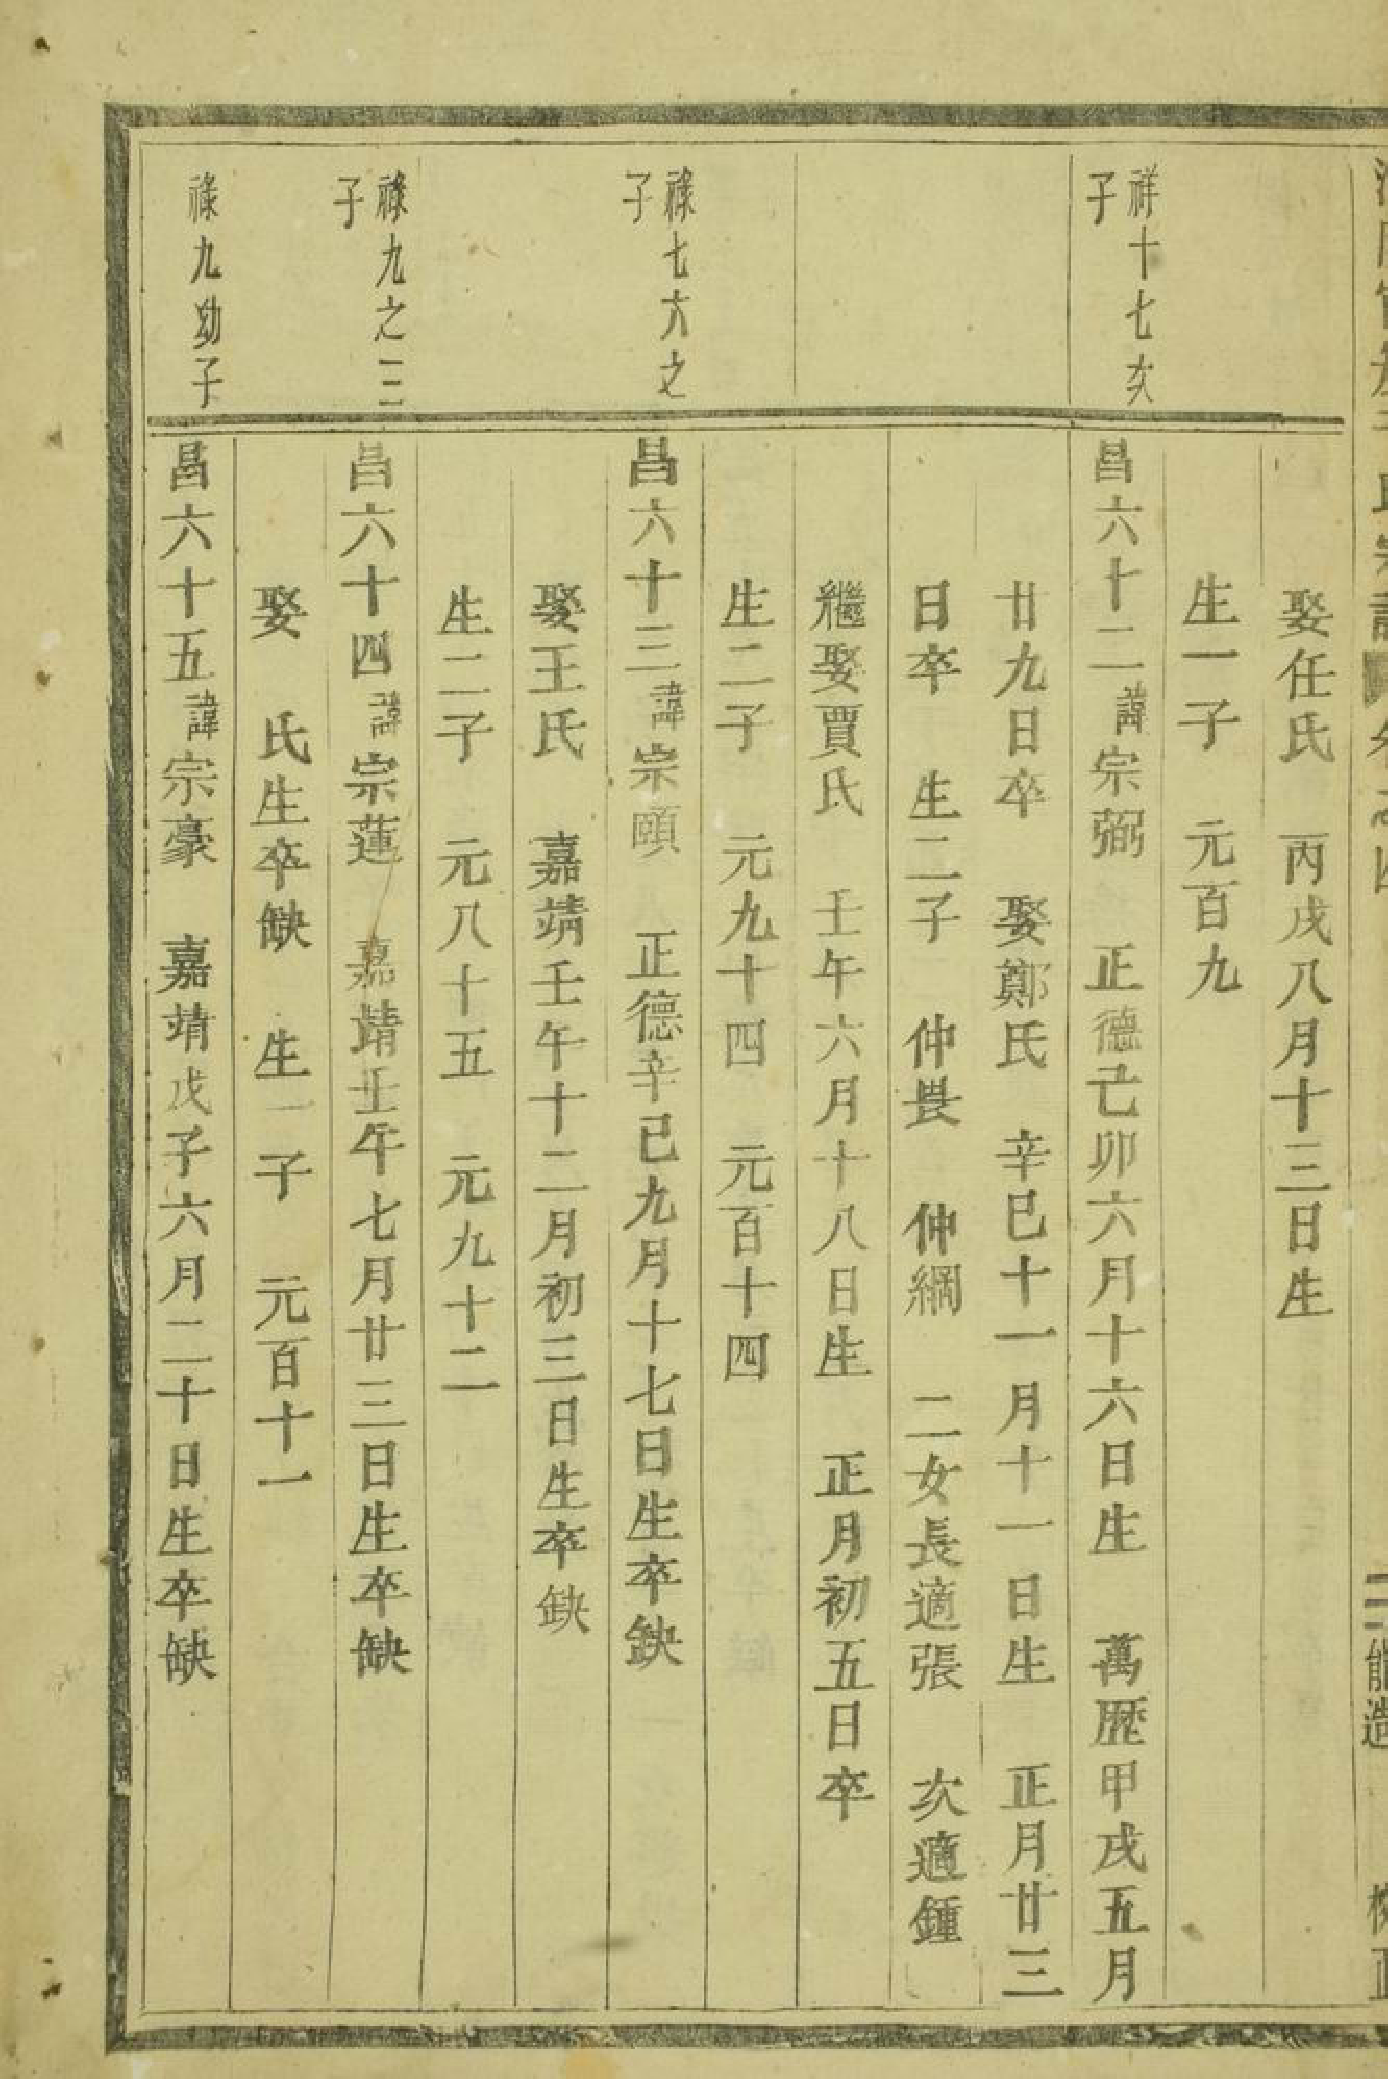 娶任氏　丙戌八月十三日生
生一子　元百九
祥十七次
子
昌六十二諱宗弼　正德己卯六月十六日生　萬歷甲戌五月
廿九日卒　娶鄭氏　辛巳十一月十一日生　正月廿三
日卒　生二子　仲㠭　仲綱　二女長適張　次適鍾
繼娶賈氏　壬午六月十八日生　正月初五日卒
生二子　元九十四　元百十四
祿七六之
子
昌六十三諱宗頤　正德辛巳九月十七日生卒缺
娶王氏　嘉靖壬午十二月初三日生卒缺
生二子　元八十五　元九十二
祿九之三
子
昌六十四諱宗蓮　嘉靖壬午七月廿三日生卒缺
娶　氏生卒缺　生一子　元百十一
祿九幼子
昌六十五諱宗豪　嘉靖戊子六月二十日生卒缺